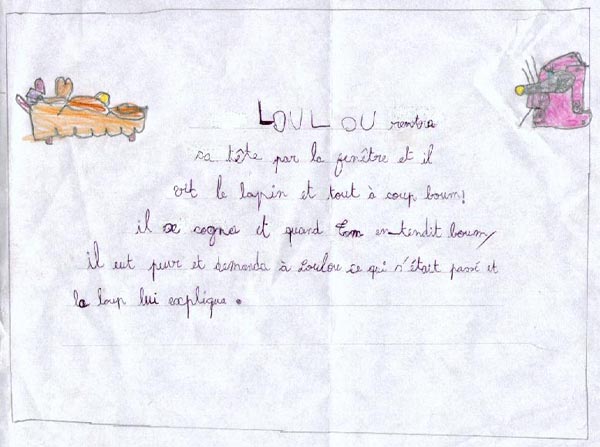 LOULOU rentra
sa tête par la fenêtre et il
vit le lapin et tout à coup boum!
il se cogna et quand Tom entendit boum,
il eut peur et demanda à Loulou ce qui s'était passé et
le loup lui expliqua.